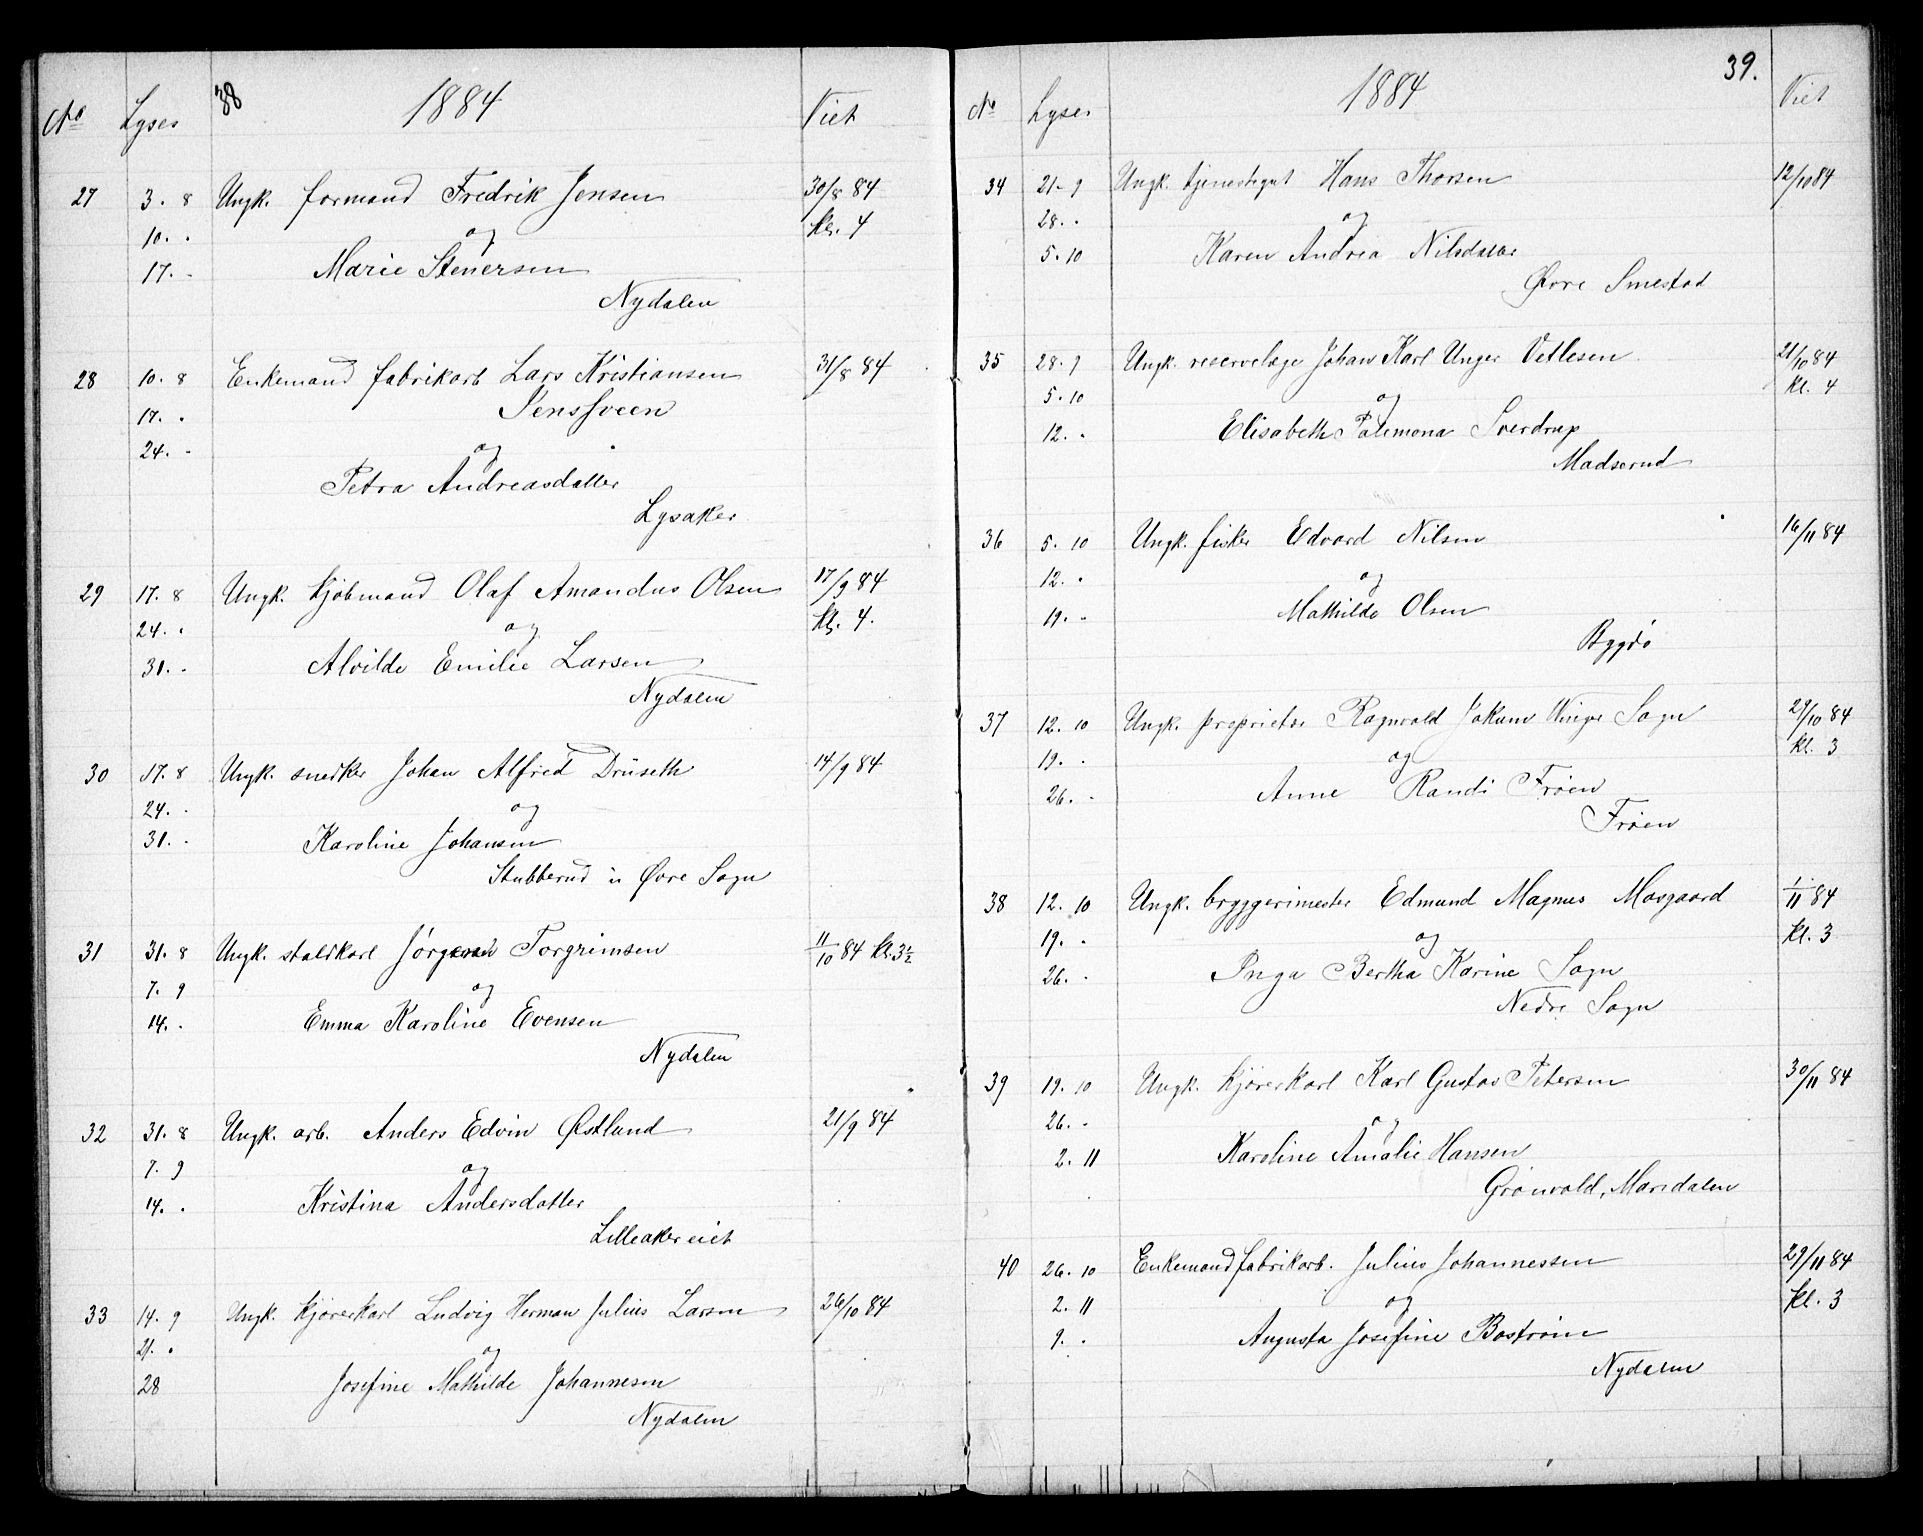 38
1884
No Lyses Viet
27 3. 8 Ungk. formand Fredrik Jensen 30/8 84
10. . og kl. 4
17. - Marie Stenersen
Nydalen
28 10. 8 Enkemand fabrikarb Lars Kristiansen 31/8 84
17. . Jenssveen
24. - og
Petra Andreasdatter
Lysaker
29 17. 8 Ungk. kjøbmand Olaf Amandus Olsen 17/9 84
24. . og kl. 4.
31. - Alvilde Emilie Larsen
Nydalen
30 17. 8 Ungk. snedker Johan Alfred Drüseth 14/9 84
24. . og
31. - Karoline Johansen
Stubberud u Øvre Sogn
31 31. 8 Ungk. staldkarl Torgrimsen 11/10 84 kl. 3½
7. 9 og
14. . Emma Karoline Evensen
Nydalen
32 31. 8 Ungk. arb. Anders Edvin Østlund 21/9 84
7. 9 og
14. . Kristina Andersdatter
Lilleaker eiet
33 14. 9 Ungk. kjørerkarl Ludvig Herman Julius Larsen 26/10 84
21. . og
28 Josefine Mathilde Johannesen
Nydalen
39.
1884
No Lyses Viet
34 21- 9 Ungk. tjenestegut Hans Thorsen 12/10 84
28. . og
5. 10 Karen Andrea Nilsdatter
Øvre Smestad
35 28. 9 Ungk. reservelæge Johan Karl Unger Vetlesen 21/10 84
5. 10 og kl. 4
12. . Elisabeth Palemona Sverdrup
Madserud
36 5. 10 Ungk. fisker Edvard Nilsen 16/11 84
12. . og
19. - Mathilde Olsen
Bygdø
37 12. 10 Ungk. proprietær Ragnvald Jokum Winge Sogn 29/10 84
19. . og kl. 3
26. - Anne Randi Frøen
Frøen
38 12. 10 Ungk. bryggerimester Edmund Magnus Mosgaard 1/11 84
19. . og kl. 3
26. . Inga Bertha Karine Sogn
Nedre Sogn
39 19. 10 Ungk. kjørerkarl Karl Gustav Petersen 30/11 84
26. . og
2. 11 Karoline Amalie Hansen
Grønvold, Maridalen
40 26. 10 Enkemand fabrikarb. Julius Johannessen 29/11 84
2. 11 og kl. 3
9. . Augusta Josefine Bostrøm
Nydalen